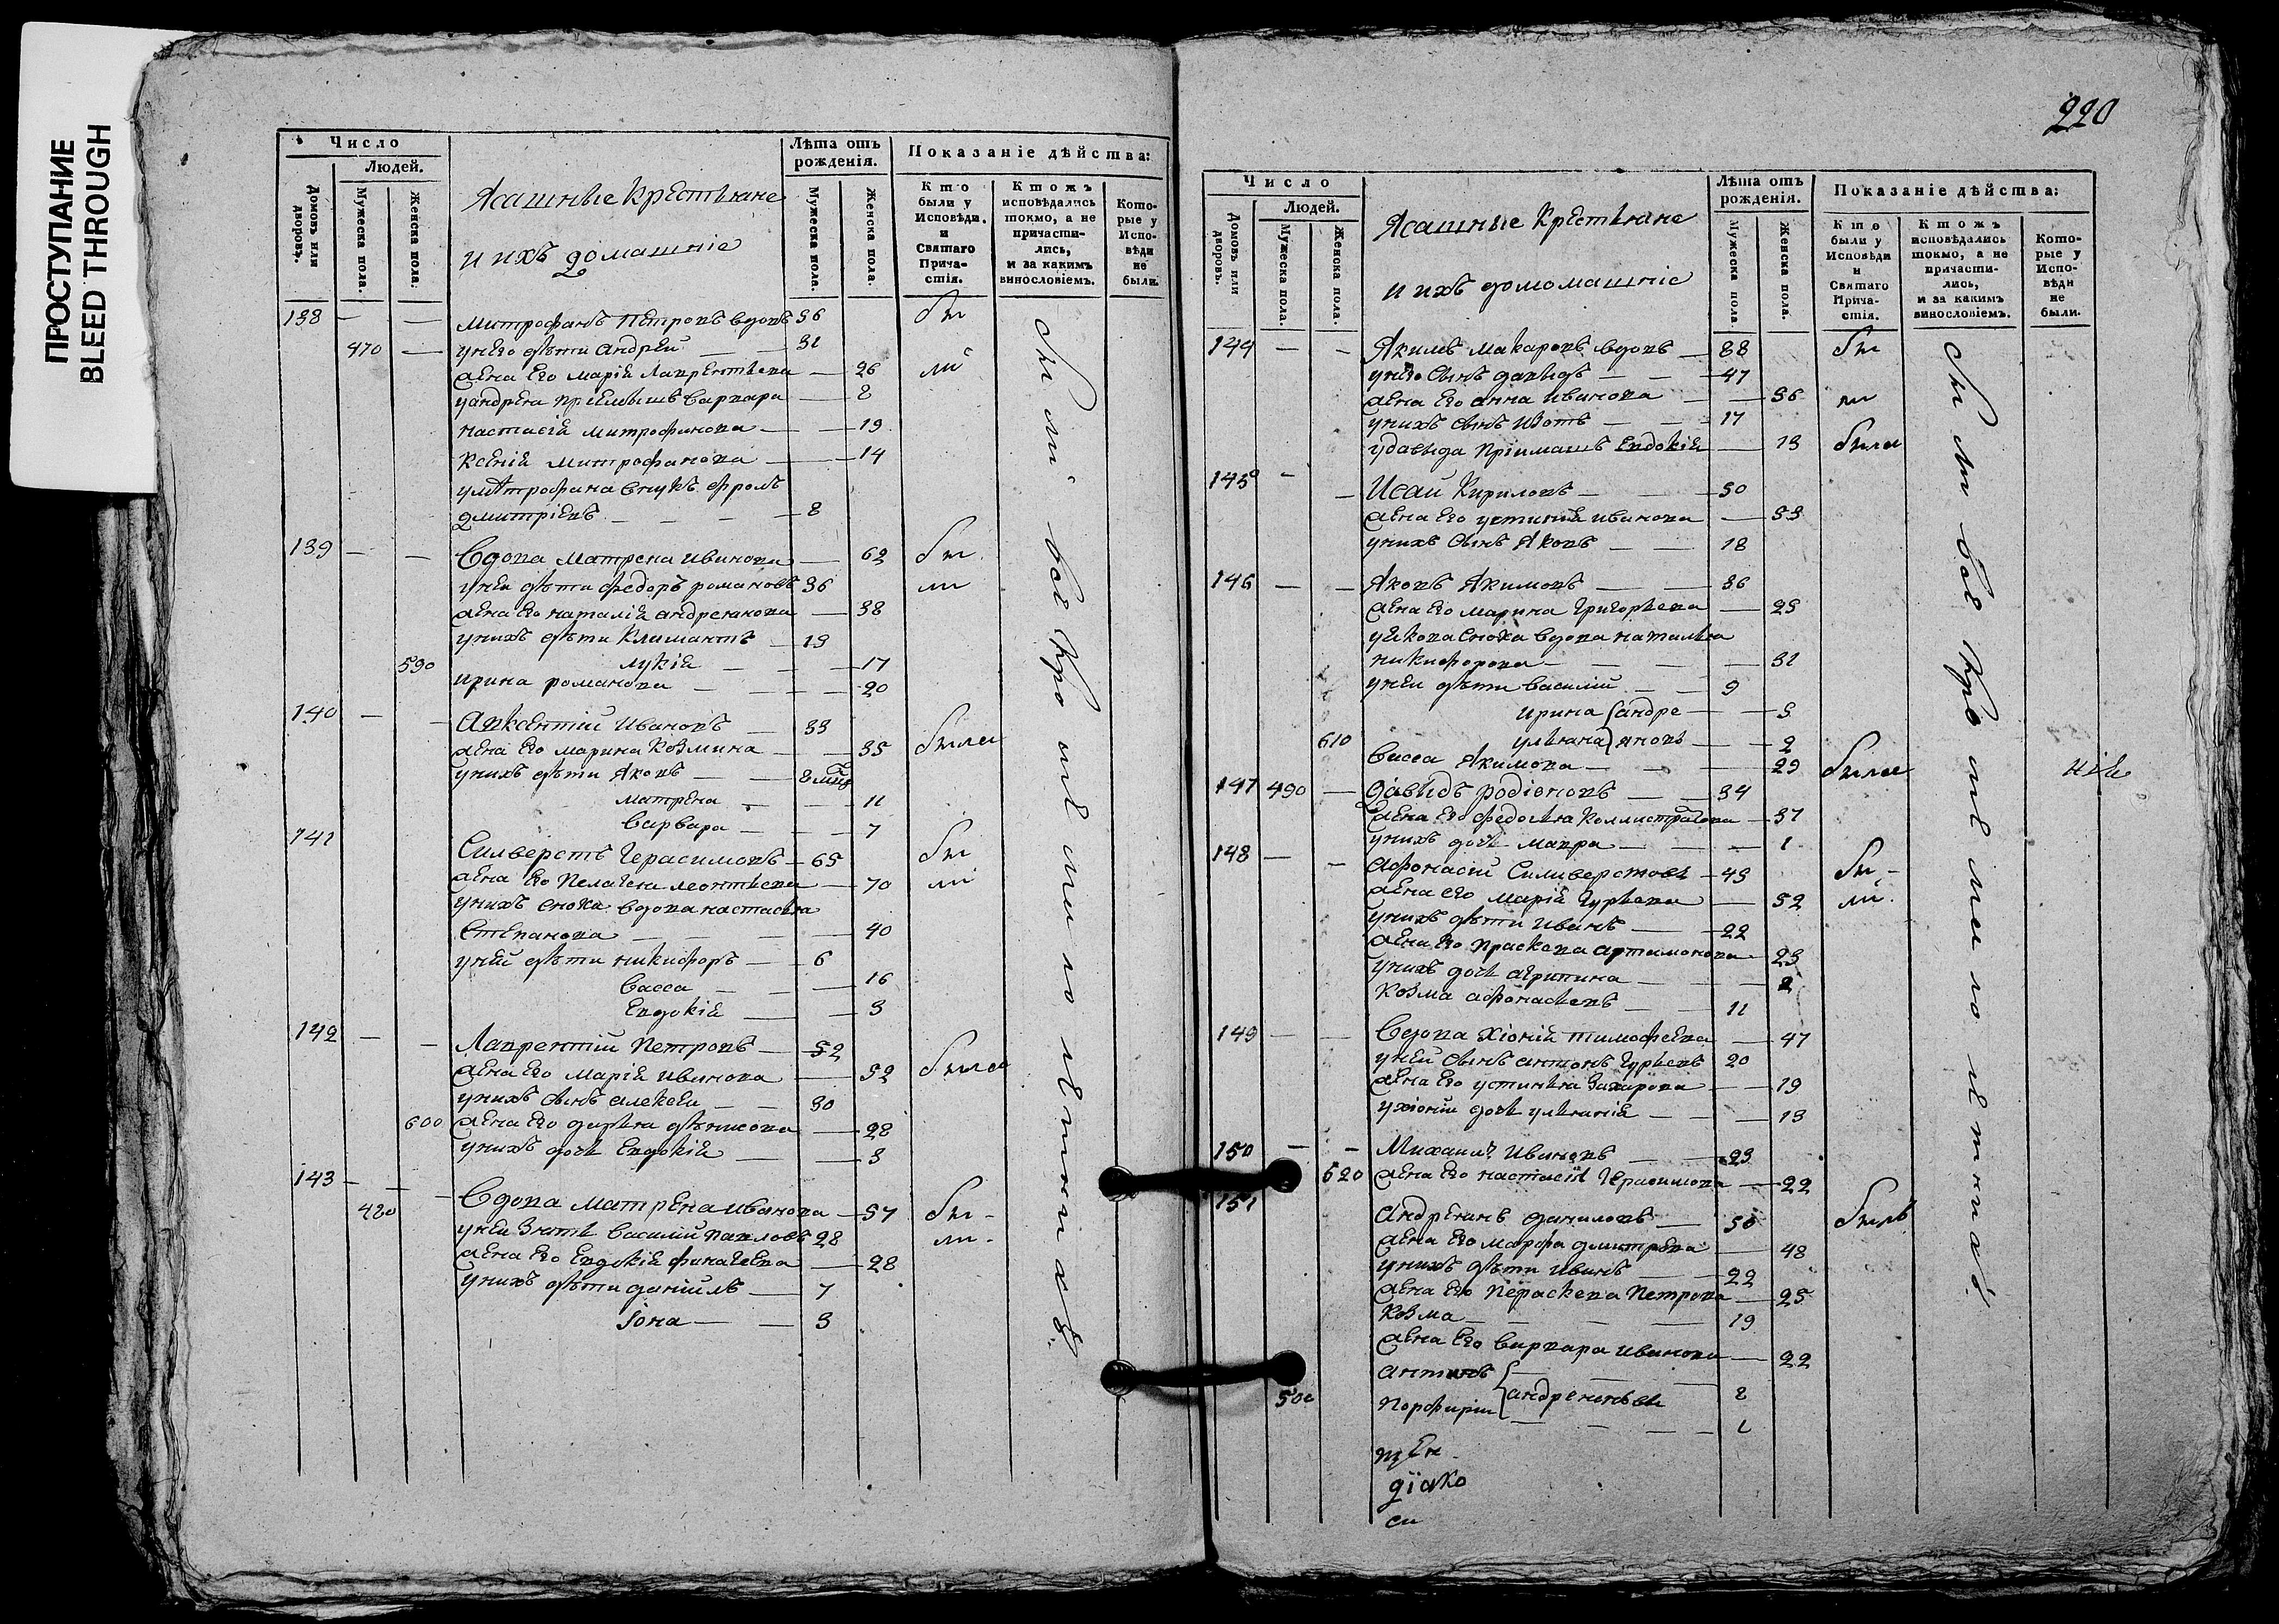 ПРОСТУПАНИЕ
BLEED THROUGH
Число
Людей.
Домовъ или дворовъ.
Мужеска пола.
Женска пола.
Ясашные Крестьяне
и ихъ домашніе
Лѣта отъ рожденія.
Мужеска пола.
Женска пола.
Показаніе дѣйства:
Кто были у Исповѣди. и Святаго Прича-стія.
Ктожъ исповѣдались токмо, а не причасти-лись, и за какимъ винословіемъ.
Кото-рые у Испо-вѣди не были.
138 — — Митрофанъ Петровъ вдовъ 36 бы
470 — унего дѣти Андрей — — 31
жена Его Марія Лаврентьева — 26 ли
уандрея пріемышъ Варвара — 8
Настасія Митрофанова — — 19
Ксенія Митрофанова — — 14
умитрофана внукъ Фролъ
Дмитріевъ — — — 8
139 — — Вдова Матрена Иванова — 62 бы
уней дѣти Федоръ Романовъ 36 ли
жена Его Наталія Андреянова — 38
унихъ дѣти Климантъ — 13
590 Лукія — — 17
Ирина Романова — — — 20
140 — — Авксентій Ивановъ — 33
жена Его Марина Козмина — — 35 были
унихъ дѣти Яковъ — — 8 мцъ
Матрена — — 11
Варвара — — 7
141 Силверстъ Герасимовъ — 65 бы
жена Его Пелагея Леонтьева — 70 ли
унихъ сноха вдова Настасья
Степанова — — — 40
уней дѣти Никифоръ — 6
Васса — — 16
Евдокія — — 3
142 — — Лаврентій Петровъ — 52
жена Его Марія Иванова — 52 были
унихъ сынъ Алексей — — 30
600 жена Его Дарья Дѣнисова — 28
унихъ дочь Евдокія — — 3
143 — — Вдова Матрена Иванова — 57 бы -
480 уней зять Василий Павловъ 28 ли -
жена Его Евдокія Финагеева — 28
унихъ дѣти Даніилъ — 7
Іона — — 3
бы ли всѣ кро мѣ ма ло лѣ тныхъ.
220
Число
Людей.
Домовъ или дворовъ.
Мужеска пола.
Женска пола.
Ясашные Крестьяне
и ихъ домомашніе
Лѣта отъ рожденія.
Мужеска пола.
Женска пола.
Показаніе дѣйства:
Кто были у Исповѣди и Святаго Прича-стія.
Ктожъ исповѣдались токмо, а не причасти-лись, и за какимъ винословіемъ.
Кото-рые у Испо-вѣди не были.
144 — — Якимъ Макаровъ вдовъ — 88 бы
унего сынъ Давыдъ — — 47
жена Его Анна Иванова — — 36 ли
унихъ сынъ Изотъ — — 17
удавыда пріимашъ Евдокія — 13 была
145 — — Исай Кириловъ — — 50
жена Его Устинія Иванова — 53
унихъ сынъ Яковъ — — 18
146 — — Яковъ Якимовъ — — 36
жена Его Марина Григорьева — 25
уякова сноха вдова Наталья
Никифорова — — — 31
уней дѣти Василий — — 9
Ирина { Андре — — 5
610 Ульяна } яновы — — 2
Васса Якимова — — — 29 была
147 490 — Давыдъ Родіоновъ — — 34
жена Его Федосья Коллистратова — 37
унихъ дочь Мавра — — — 1
148 — — Афонасій Силиверстовъ — 43 бы -
жена его Марія Гурьева — 52 ли.
унихъ дѣти Иванъ — — 22
жена Его Праскева Артамонова — 23
унихъ дочь Агрипина — — 2
Козма Афонасьевъ — — 11
149 — — Вдова Хіонія Тимофеева — 47
уней сынъ Антонъ Гурьевъ 20
жена Его Устинья Захарова — — 19
ухіоніи дочь Ульянія — — 13
150 — — Михаилъ Ивановъ — — 23
620 жена Его Настасія Герасимова — 22
151 Андреянъ Даниловъ — 50 былъ
жена Его Марфа Дмитрева — 48
унихъ дѣти Иванъ — — 22
жена Его Параскева Петрова — 25
Козма — — — — 19
жена Его Варвара Иванова — 22
Антонъ { — — — 8
500 Порфирій { Андреяновы — — 1
бы ли всѣ кро мѣ ма ло лѣ тныхъ.
щен
діако
си